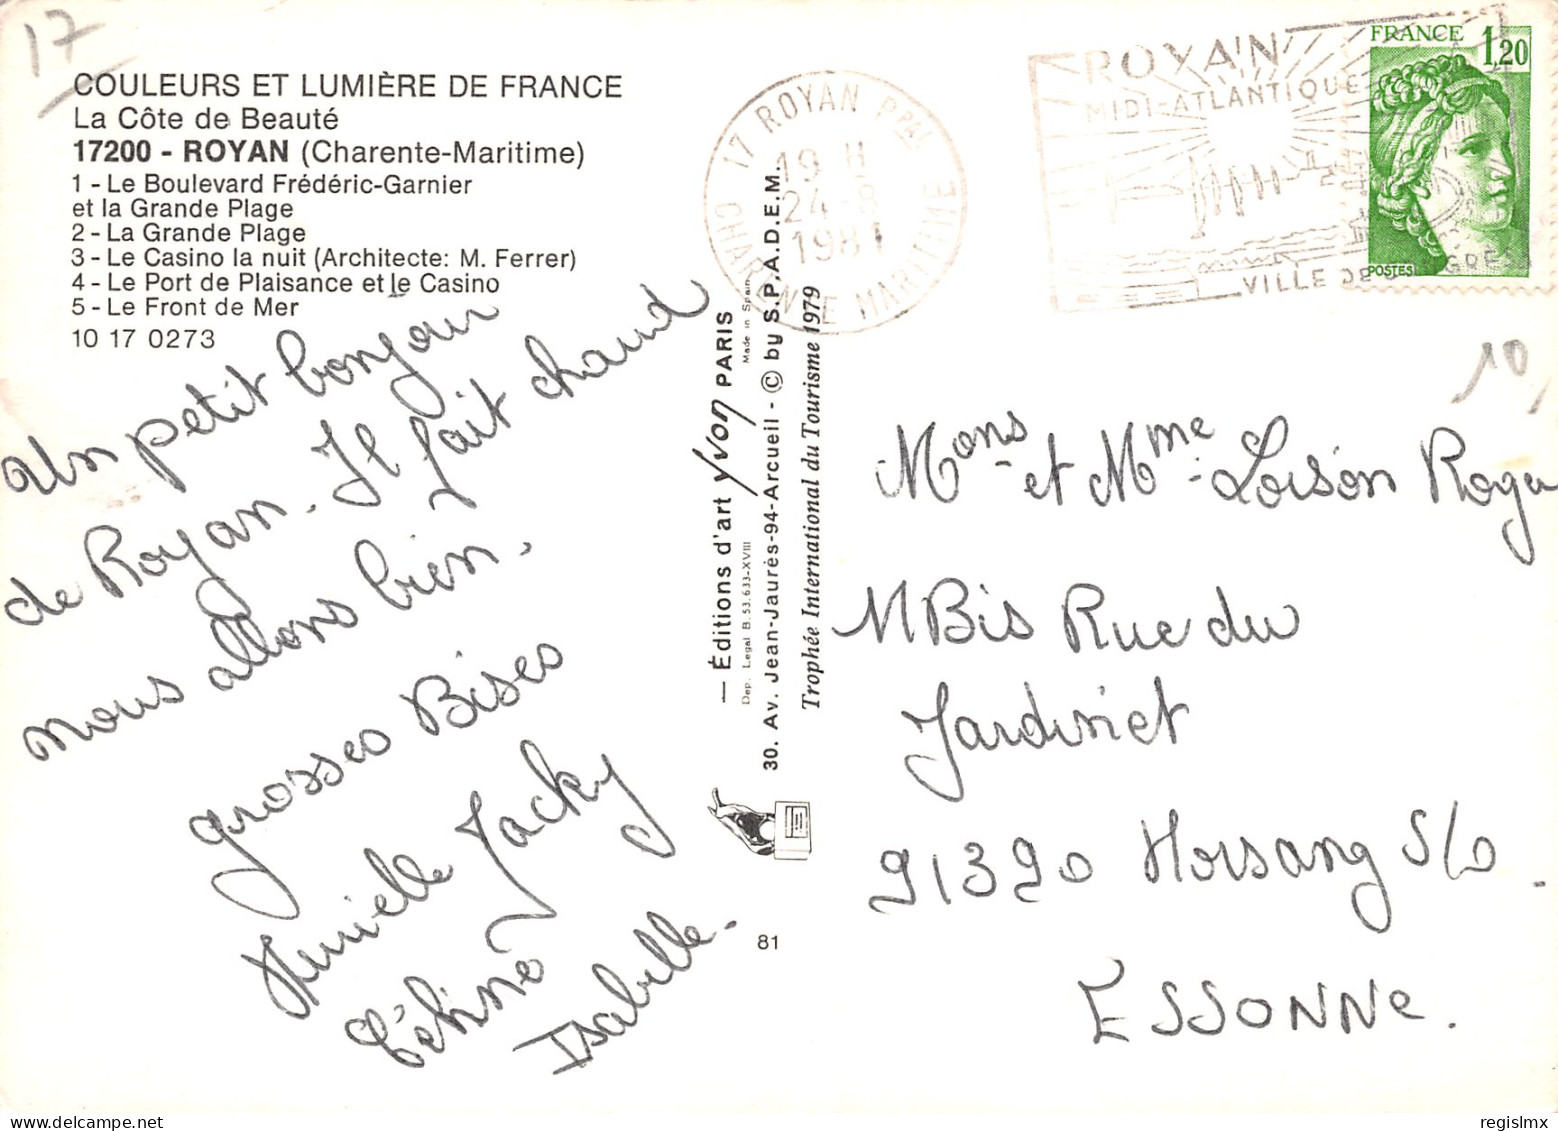 17
COULEURS ET LUMIÈRE DE FRANCE
La Côte de Beauté
17200 - ROYAN (Charente-Maritime)
1 - Le Boulevard Frédéric-Garnier
et la Grande Plage
2 - La Grande Plage
3 - Le Casino la nuit (Architecte: M. Ferrer)
4 - Le Port de Plaisance et le Casino
5 - Le Front de Mer
10 17 0273
Un petit bonjour
de Royan. Il fait chaud
nous allons bien.
grosses Bises
Murielle Jacky
Isabelle.
— Éditions d'art Yvon PARIS
Dep. Legal B.53.633-XVIII Made in Spain
30. Av. Jean-Jaurès-94-Arcueil - © by S.P.A.D.E.M.
Trophée International du Tourisme 1979
81
17 ROYAN Ppal
19 H
24-8
1981
CHARENTE MARITIME
ROYAN
MIDI-ATLANTIQUE
VILLE DE CONGRES
FRANCE 1,20
POSTES
10
Mons et Mme Loison Roger
11 Bis Rue du
Jardiniet
91390 Morsang S/O.
ESSONNe.
regislmx